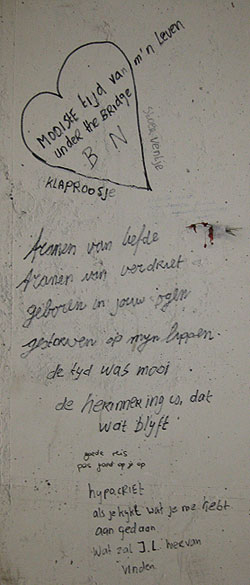 MOOISTE tijd van m'n leven
under the Bridge
B N
KLAPROOSJE
ventje
tranen van liefde
tranen van verdriet
geboren in jouw ogen
gestorven op mijn lippen
de tijd was mooi
de herinnering is dat
wat blijft
goede reis
pas goed op je
hypocriet
als je kijkt wat je me hebt
aan gedaan
wat zal J.L. hier van
vinden